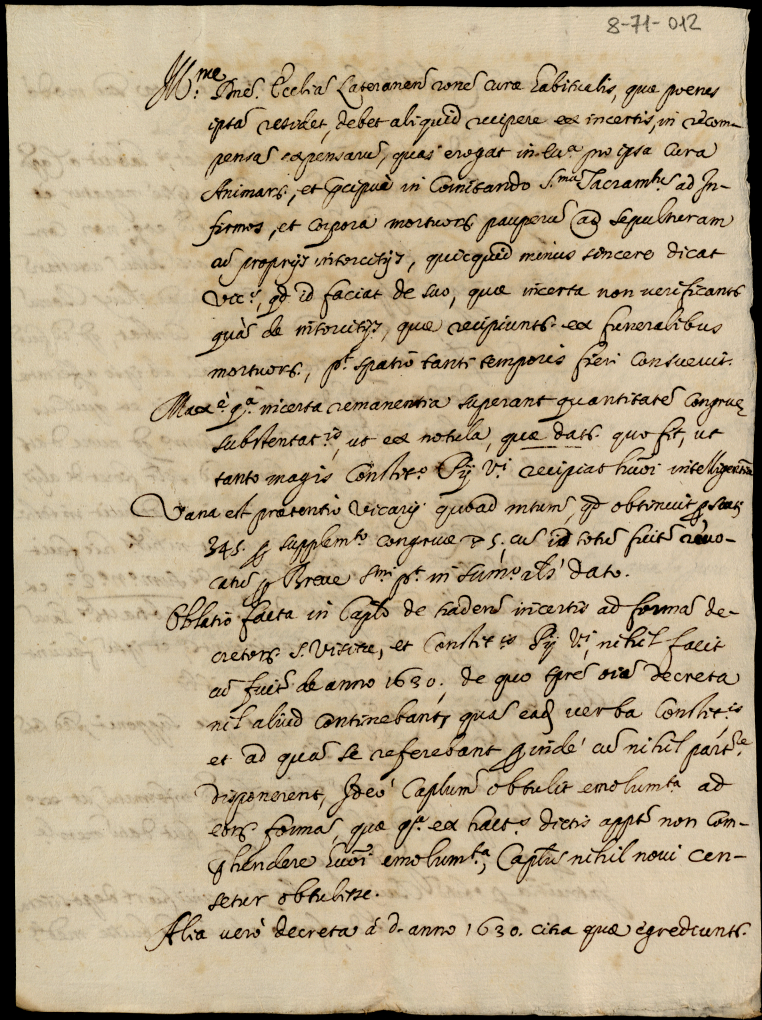 8-71-012
Ill.me Dne. Ecclia Lateranen rone curæ habitualis, quæ poenes
ipsā residet, debet aliquid recipere ex incertis, in recom-
pensā expensarū, quas erogat in ea pro ipsa Cura
Animarȝ, et præcipuè in Coīcando S.mū Sacram.tū ad In-
firmos, et corpora mortuorȝ pauperū ad sepulturam
cū proprijs intorcitijs, quicquid minus sincere dicat
Vic.s, qd id faciat de suo, quæ incerta non verificantȝ
quā de intorcitijs, quæ recipiuntȝ ex funeralibus
mortuorȝ, pt spatiū tanti temporis fieri consuevit.
Max.è q.a incerta remanentia superant quantitatē Congruæ
substentat.is, ut ex notula, quæ datȝ. quo fit, ut
tanto magis Constit.o Pij V.i recipiat huōi intelligentiā
Vana est prætentio Vicarij quoad mtum, qd obtinuit p scuti
345. p supplem.to congruæ 5, cū id totū fuit revo-
catū p Breve Smi pt in Sum.o dato.
Oblatio facta in Caplo de tradend incertis ad formā de-
cretorȝ S. Visitæ, et Constit.is Pij V.i, nihil facit
cū fuit de anno 1630., de quo tpre oīa decreta
nil aliud continebant, quā ead verba Constit.is
et ad quā se referebant proindè cū nihil part.re
disponerent, Ideò Caplum obtulit emolum.ta ad
eorȝ formā, quæ q.a ex hact.s dictis appt non com-
phendere huōi emolum.ta, Caplū nihil novi cen-
setur obtulisse.
Alia verò decreta à d. anno 1630. citra quæ egrediuntȝ